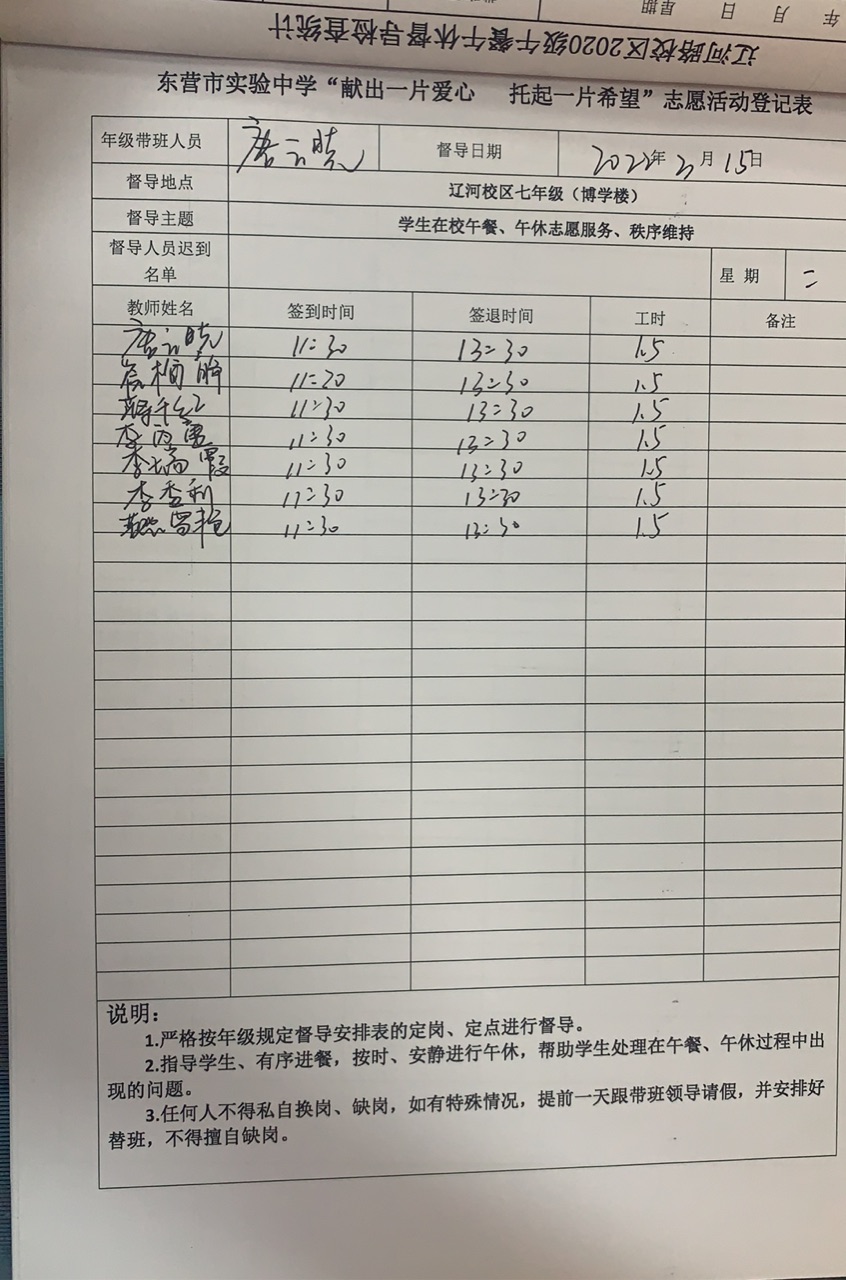 年 月 日 星期
辽河路校区2020级午餐午休督导检查统计
东营市实验中学“献出一片爱心 托起一片希望”志愿活动登记表
年级带班人员 唐云晓 督导日期 2022年2月15日
督导地点 辽河校区七年级（博学楼）
督导主题 学生在校午餐、午休志愿服务、秩序维持
督导人员迟到名单 星 期 二
教师姓名 签到时间 签退时间 工时 备注
唐云晓 11:30 13:30 1.5
11:30 13:30 1.5
11:30 13:30 1.5
李 11:30 13:30 1.5
李瑞霞 11:30 13:30 1.5
李秀利 11:30 13:30 1.5
11:30 13:30 1.5
说明：
1.严格按年级规定督导安排表的定岗、定点进行督导。
2.指导学生、有序进餐，按时、安静进行午休，帮助学生处理在午餐、午休过程中出
现的问题。
3.任何人不得私自换岗、缺岗，如有特殊情况，提前一天跟带班领导请假，并安排好
替班，不得擅自缺岗。